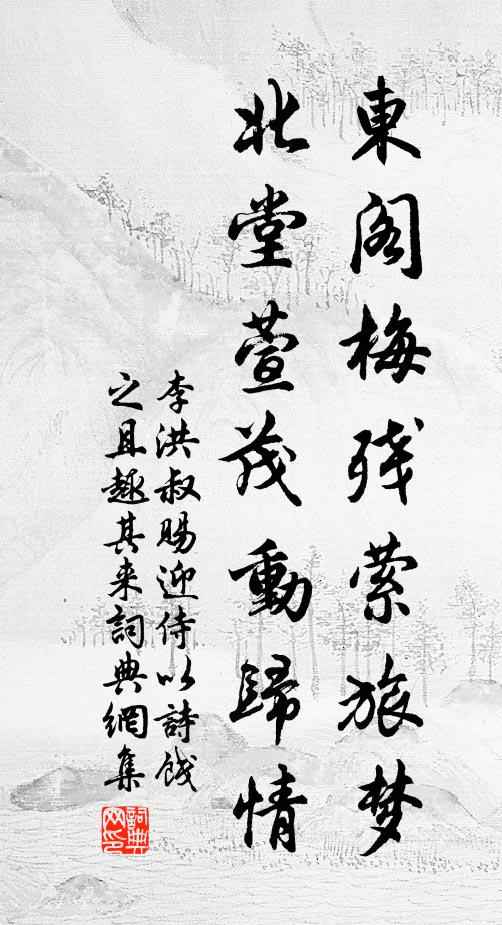 東阁梅残縈旅梦
北堂萱茂動歸情
李洪叔赐迎侍以詩餞
之且趣其来詞典網集
詞典网印